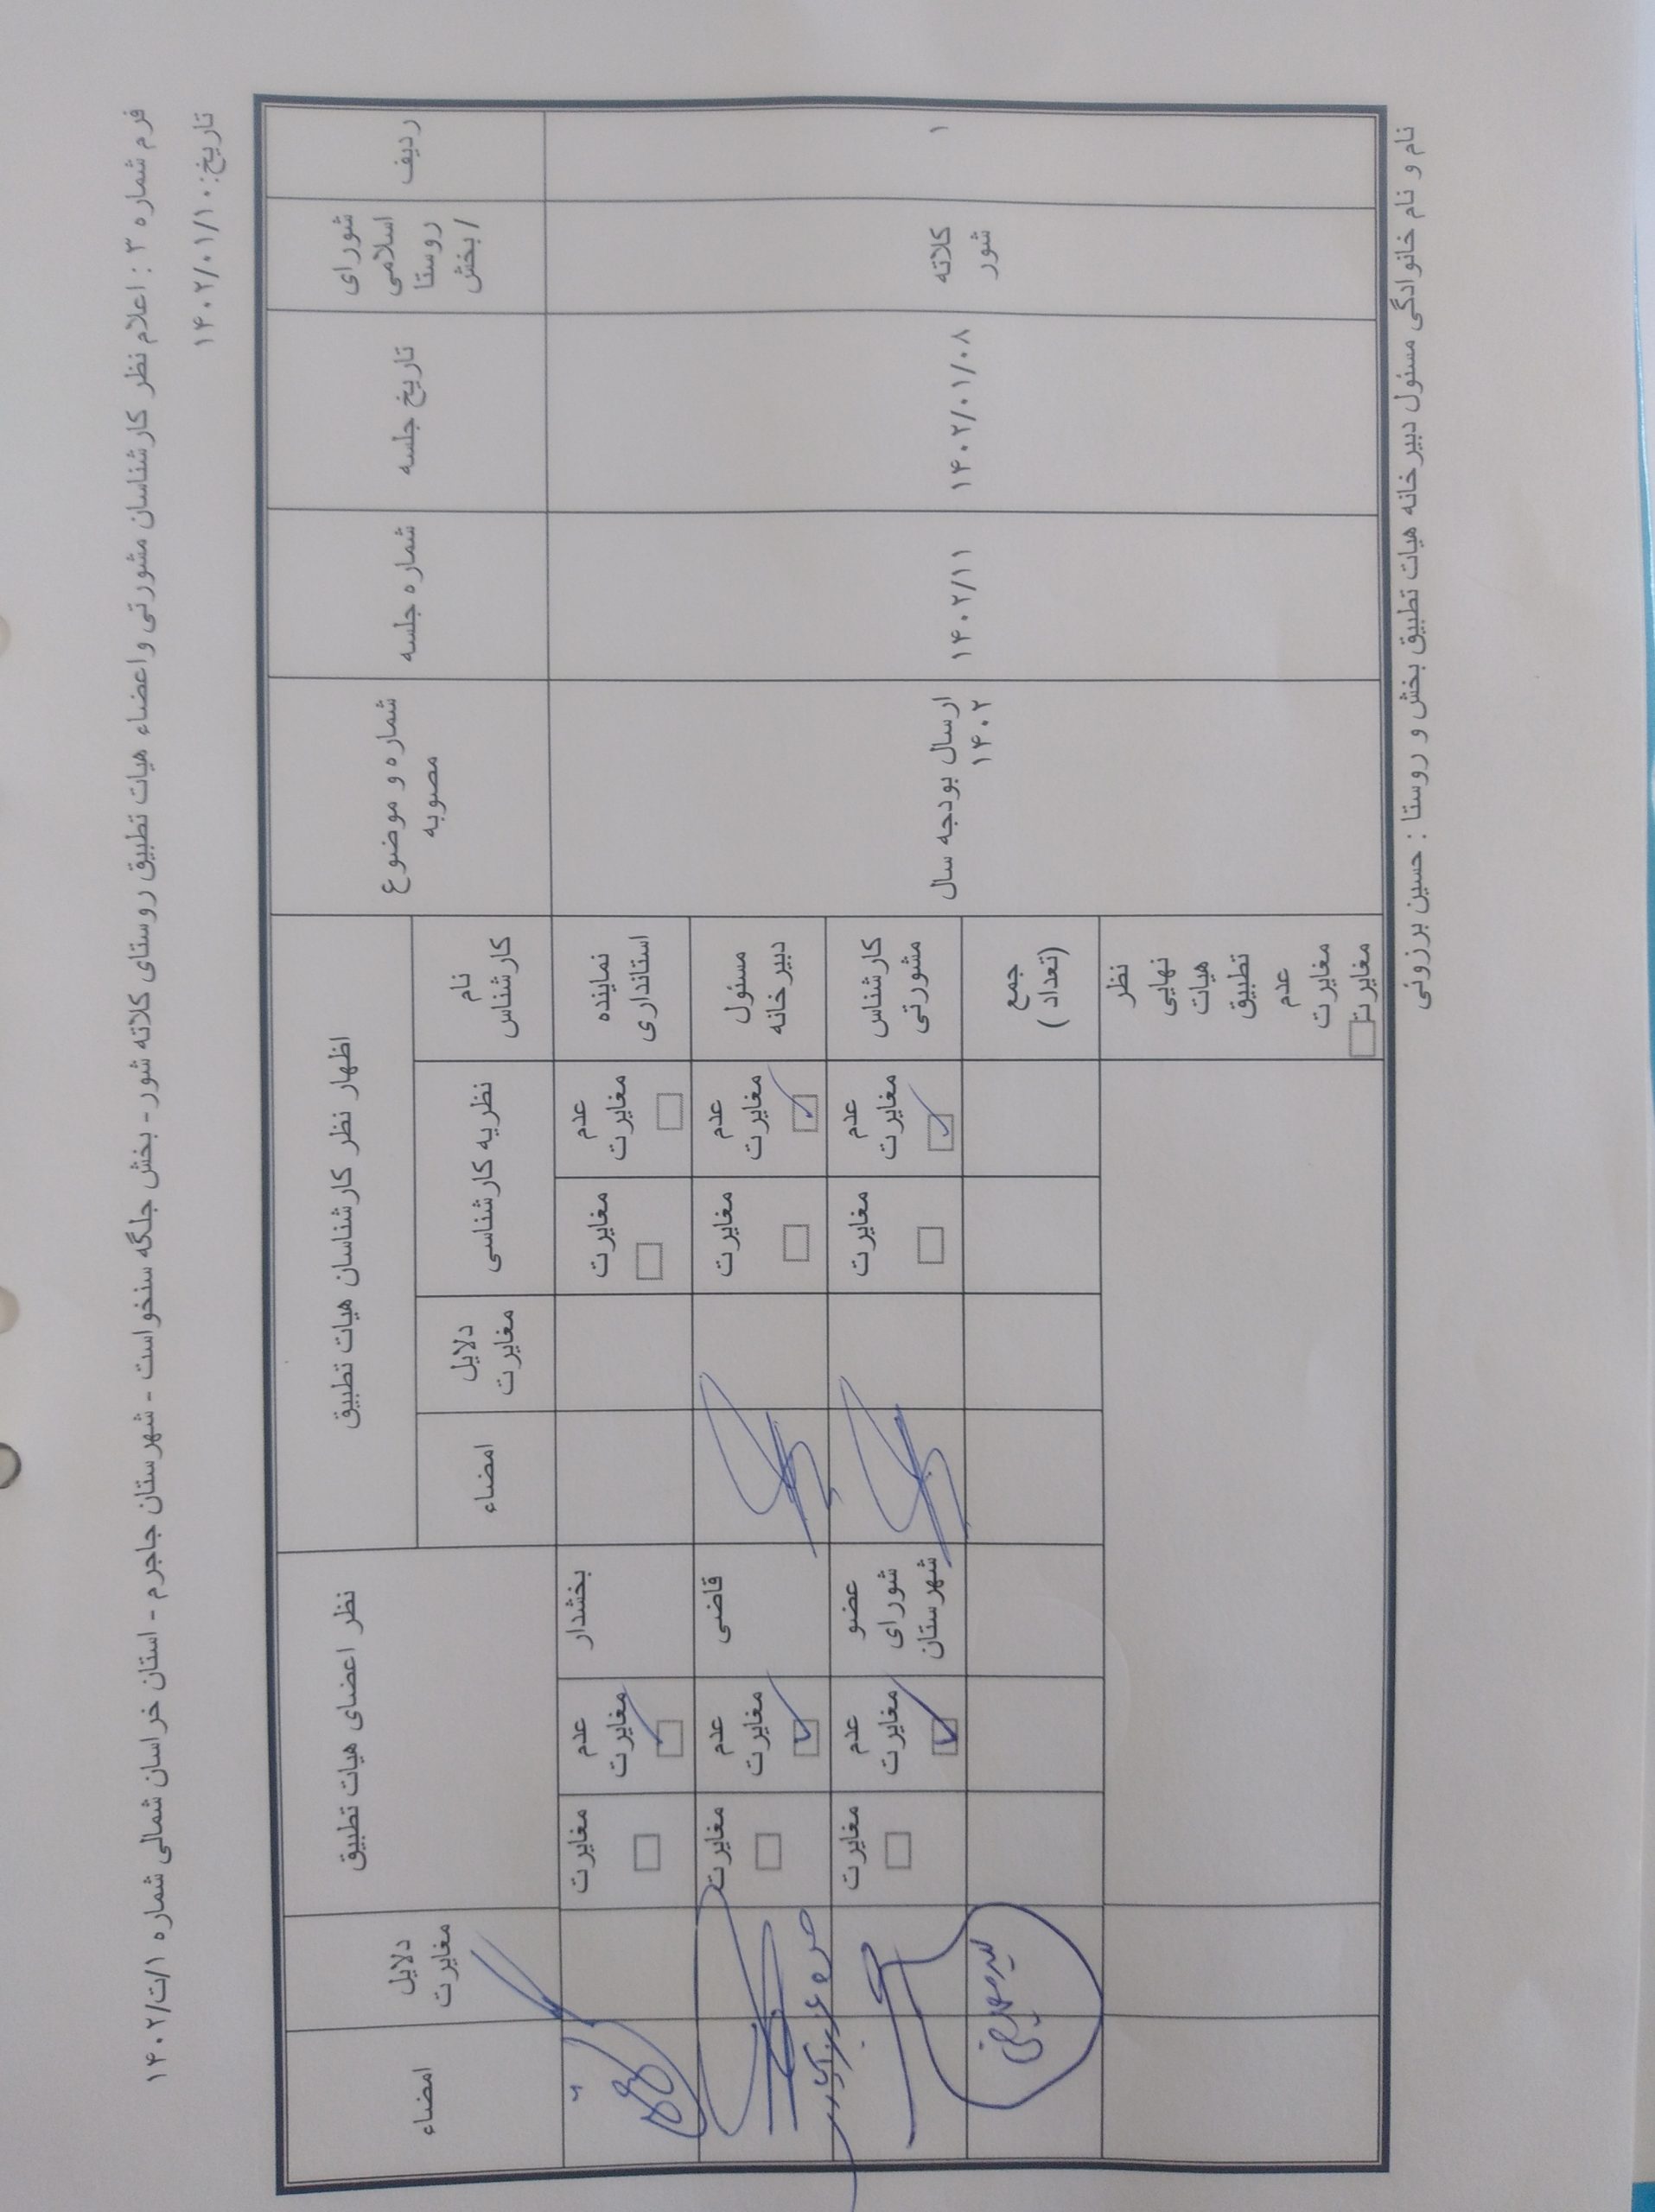 فرم شماره ۳ : اعلام نظر کارشناسان مشورتی و اعضاء هیات تطبیق روستای کلاته شور - بخش جلگه سنخواست - شهرستان جاجرم - استان خراسان شمالی شماره ۱/ت/۱۴۰۲
تاریخ: ۱۴۰۲/۰۱/۱۰
ردیف
شورای
اسلامی
روستا
/ بخش
تاریخ جلسه
شماره جلسه
شماره و موضوع
مصوبه
اظهار نظر کارشناسان هیات تطبیق
نظر اعضای هیات تطبیق
دلایل
مغایرت
امضاء
نام
کارشناس
نظریه کارشناسی
دلایل
مغایرت
امضاء
۱
کلاته
شور
۱۴۰۲/۰۱/۰۸
۱۴۰۲/۱۱
ارسال بودجه سال
۱۴۰۲
نماینده
استانداری
عدم
مغایرت
مغایرت
بخشدار
عدم
مغایرت
مغایرت
مسئول
دبیرخانه
عدم
مغایرت
مغایرت
قاضی
عدم
مغایرت
مغایرت
کارشناس
مشورتی
عدم
مغایرت
مغایرت
عضو
شورای
شهرستان
عدم
مغایرت
مغایرت
جمع
(تعداد )
نظر
نهایی
هیات
تطبیق
عدم
مغایرت
مغایرت
نام و نام خانوادگی مسئول دبیرخانه هیات تطبیق بخش و روستا : حسین برزونی